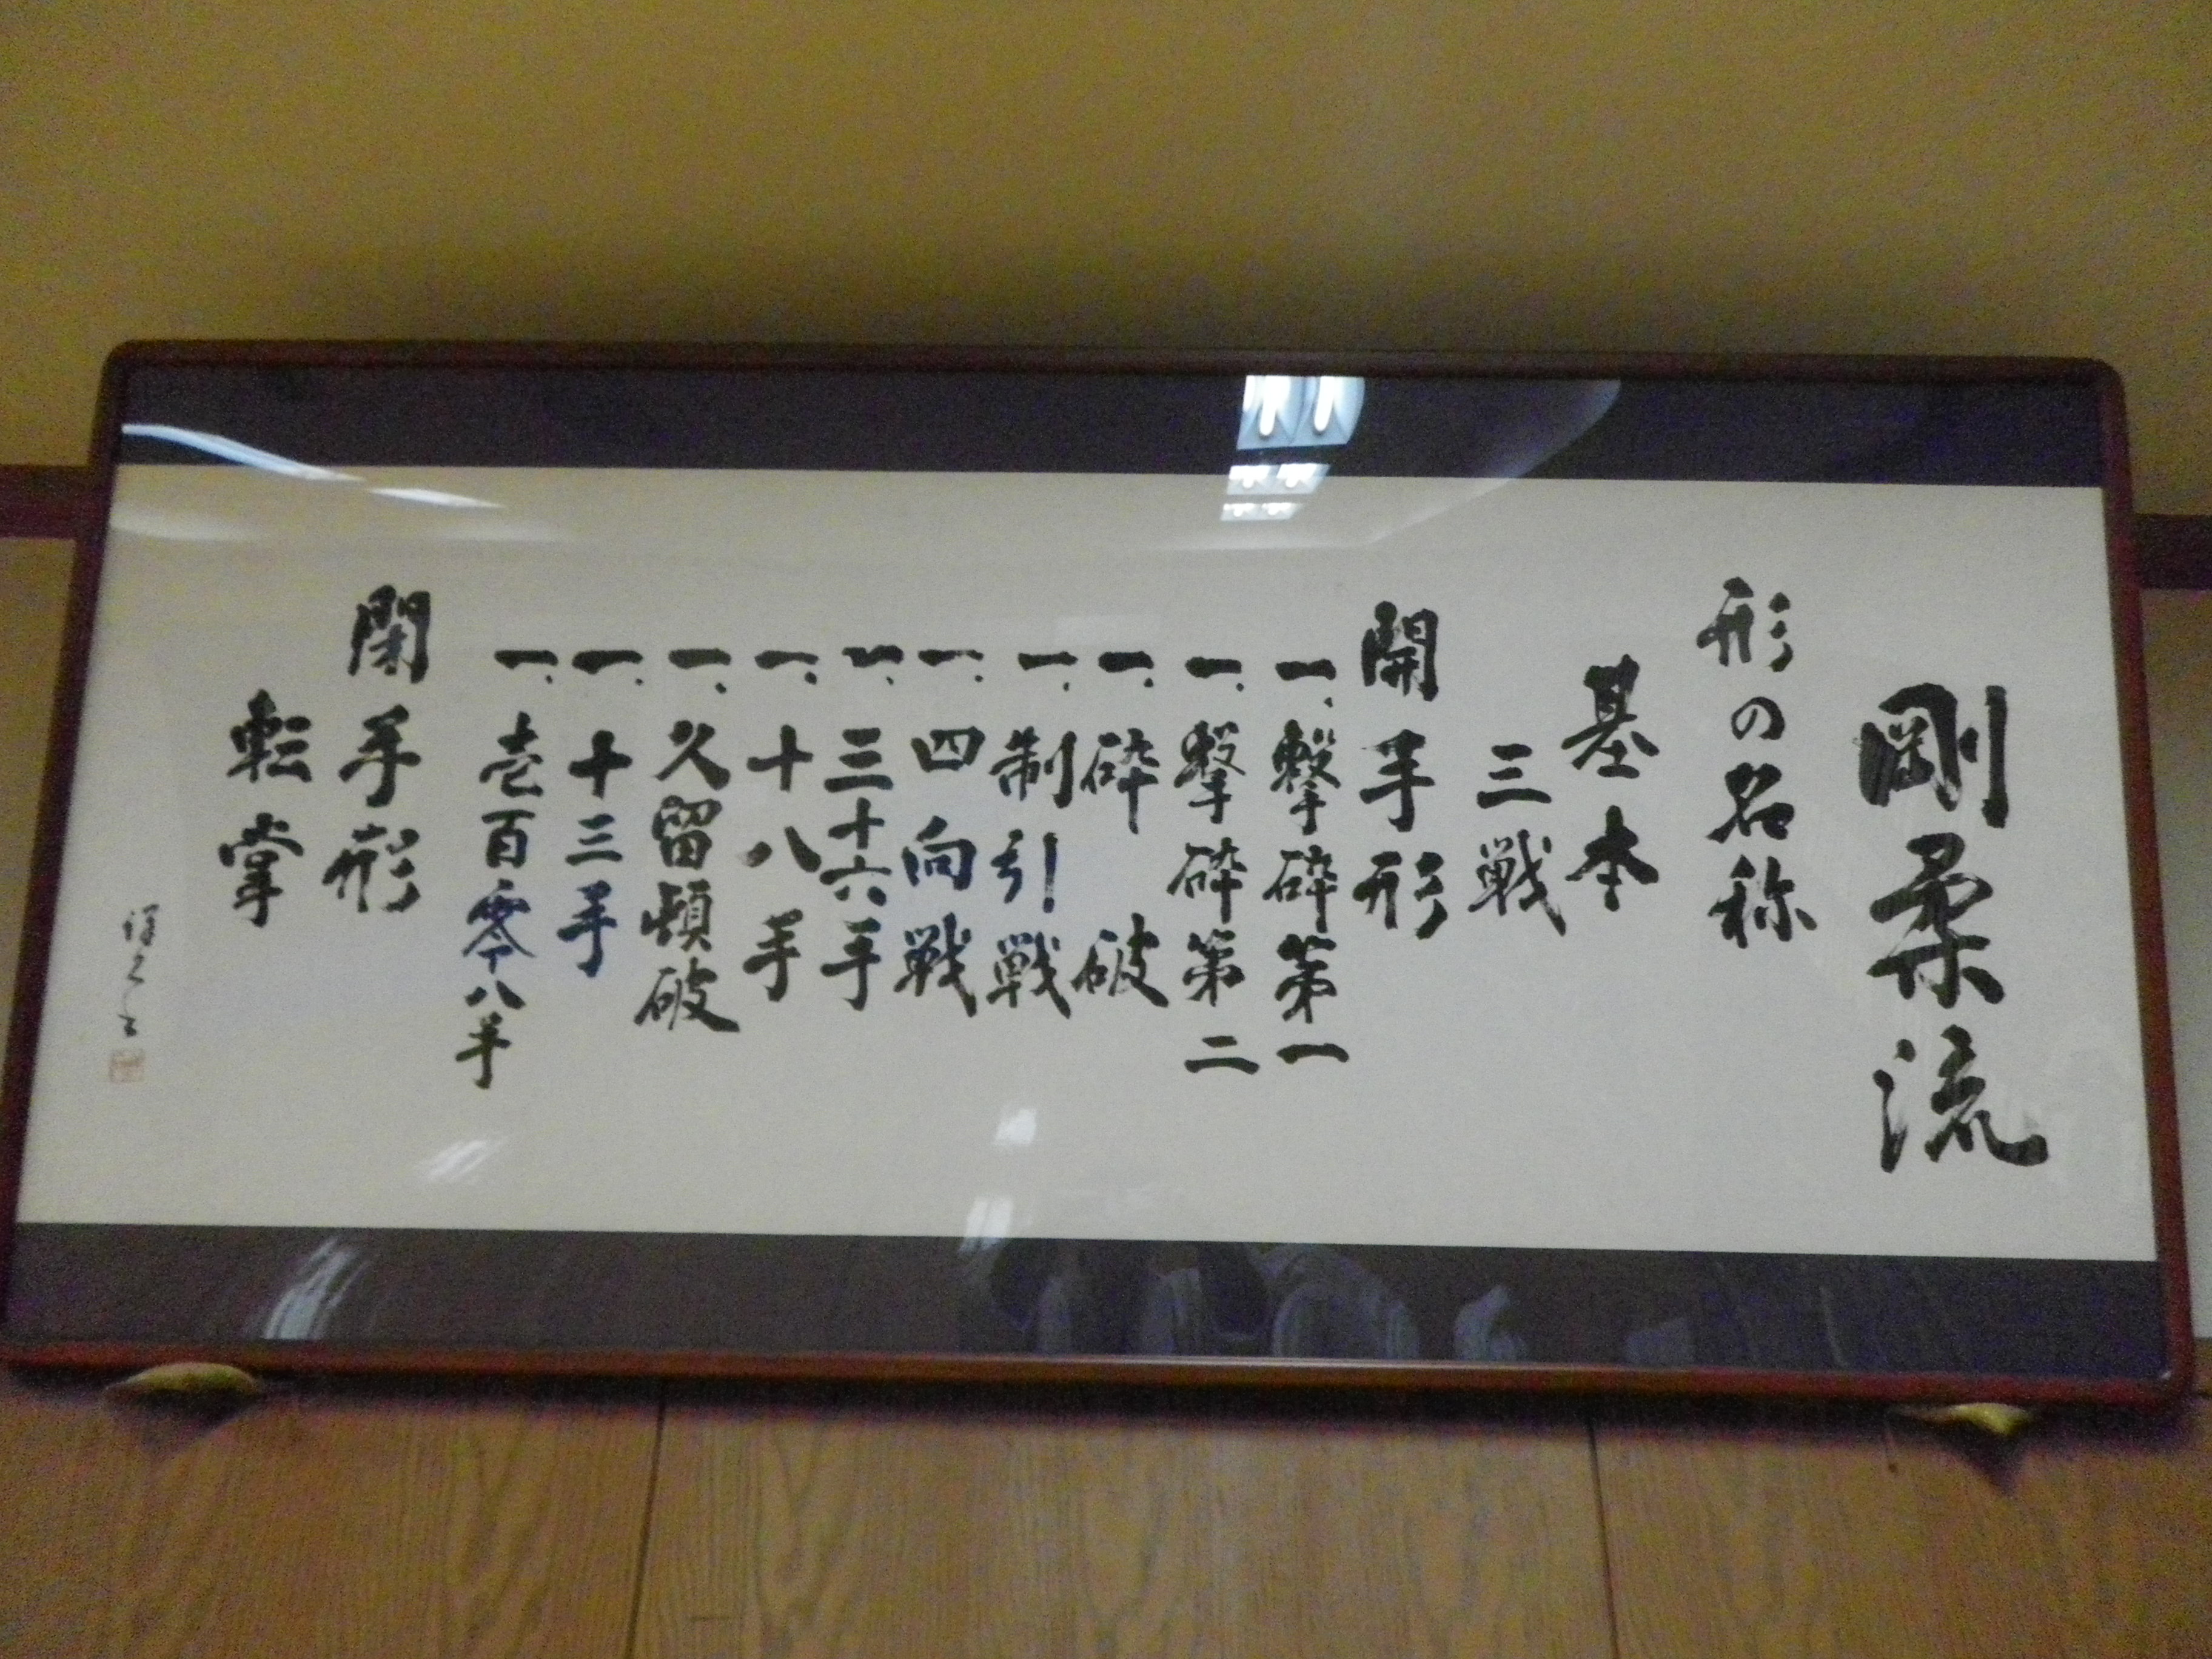 剛柔流
形の名称
基本
三戦
開手形
一、撃砕第一
一、撃砕第二
一、砕破
一、制引戦
一、四向戦
一、三十六手
一、十八手
一、久留頓破
一、十三手
一、壱百零八手
閉手形
転掌